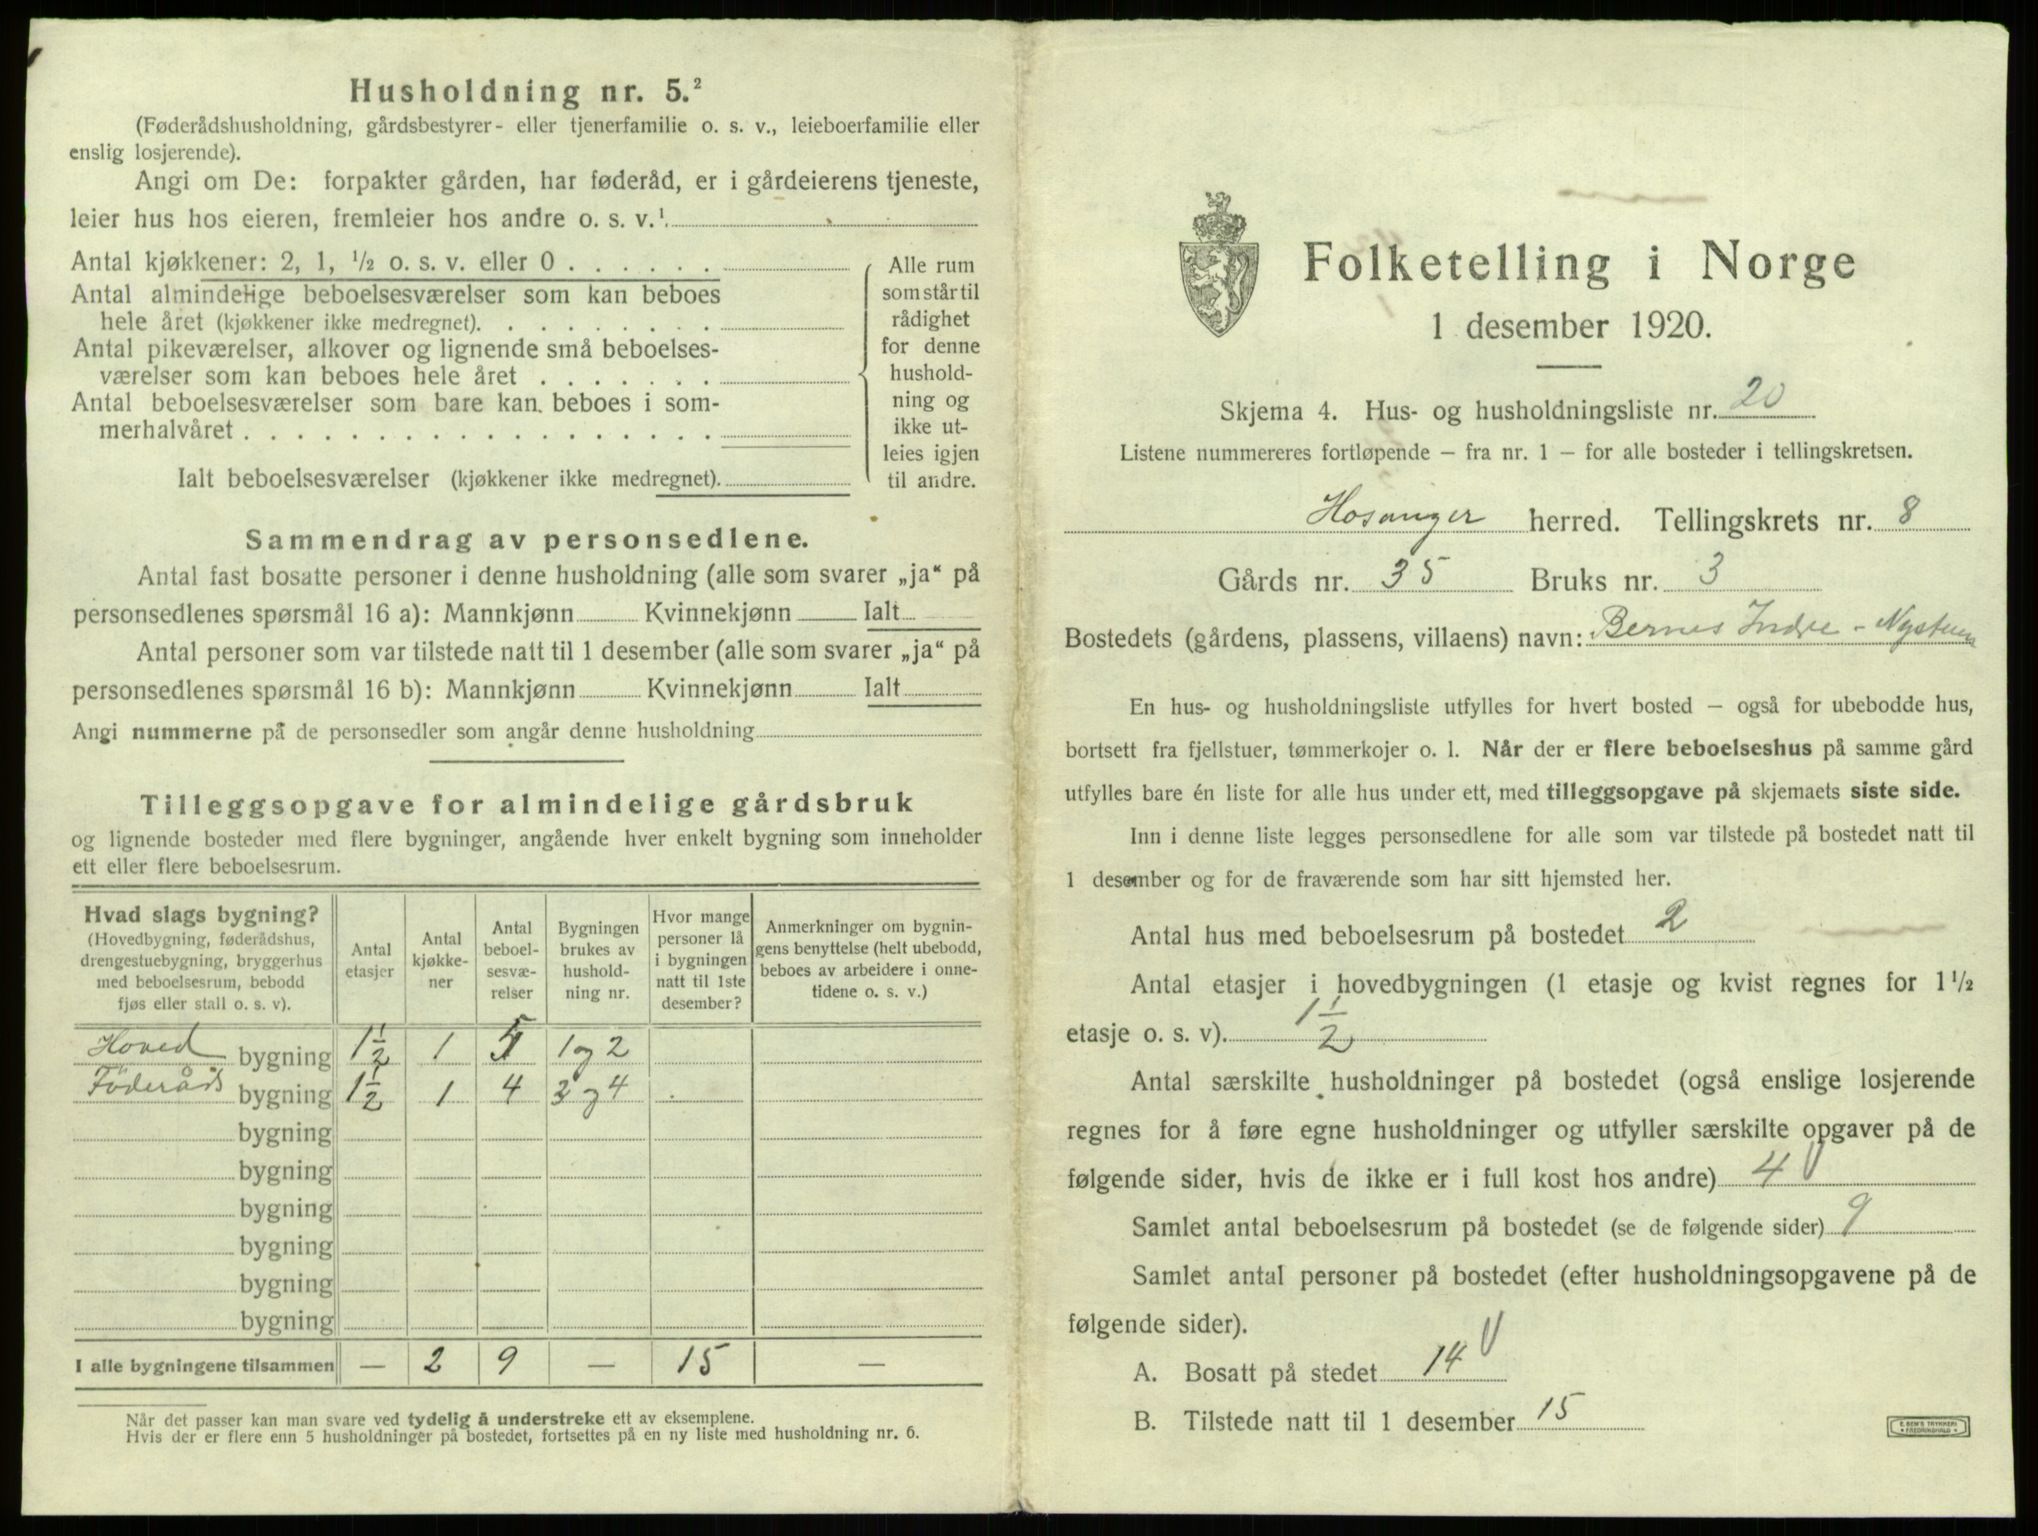 Husholdning nr. 5.²
(Føderådshusholdning, gårdsbestyrer- eller tjenerfamilie o. s. v., leieboerfamilie eller
enslig losjerende).
Angi om De: forpakter gården, har føderåd, er i gårdeierens tjeneste,
leier hus hos eieren, fremleier hos andre o. s. v.¹
Antal kjøkkener: 2, 1, ½ o. s. v. eller 0 . . . . . .
Antal almindelige beboelsesværelser som kan beboes
hele året (kjøkkener ikke medregnet). . . . . . . . .
Antal pikeværelser, alkover og lignende små beboelses-
værelser som kan beboes hele året . . . . . . .
Antal beboelsesværelser som bare kan beboes i som-
merhalvåret . . . . . . . . . . . . . . . . . .
Ialt beboelsesværelser (kjøkkener ikke medregnet).
Alle rum
som står til
rådighet
for denne
hushold-
ning og
ikke ut-
leies igjen
til andre.
Sammendrag av personsedlene.
Antal fast bosatte personer i denne husholdning (alle som svarer „ja“ på
personsedlenes spørsmål 16 a): Mannkjønn Kvinnekjønn Ialt
Antal personer som var tilstede natt til 1 desember (alle som svarer „ja“ på
personsedlenes spørsmål 16 b): Mannkjønn Kvinnekjønn Ialt
Angi nummerne på de personsedler som angår denne husholdning
Tilleggsopgave for almindelige gårdsbruk
og lignende bosteder med flere bygninger, angående hver enkelt bygning som inneholder
ett eller flere beboelsesrum.
Hvad slags bygning?
(Hovedbygning, føderådshus,
drengestuebygning, bryggerhus
med beboelsesrum, bebodd
fjøs eller stall o. s. v).
Antal
etasjer
Antal
kjøkke-
ner
Antal
beboel-
sesvæ-
relser
Bygningen
brukes av
hushold-
ning nr.
Hvor mange
personer lå
i bygningen
natt til 1ste
desember?
Anmerkninger om bygnin-
gens benyttelse (helt ubebodd,
beboes av arbeidere i onne-
tidene o. s. v.)
Hoved bygning 1½ 1 5 1 og 2
Föderåds bygning 1½ 1 4 3 og 4
bygning
bygning
bygning
bygning
bygning
bygning
I alle bygningene tilsammen — 2 9 — 15 —
Når det passer kan man svare ved tydelig å understreke ett av eksemplene.
Hvis der er flere enn 5 husholdninger på bostedet, fortsettes på en ny liste med husholdning nr. 6.
Folketelling i Norge
1 desember 1920.
Skjema 4. Hus- og husholdningsliste nr. 20
Listene nummereres fortløpende – fra nr. 1 – for alle bosteder i tellingskretsen.
Hosanger herred. Tellingskrets nr. 8
Gårds nr. 35 Bruks nr. 3
Bostedets (gårdens, plassens, villaens) navn: Bernes Indre - Nystuen
En hus- og husholdningsliste utfylles for hvert bosted – også for ubebodde hus,
bortsett fra fjellstuer, tømmerkojer o. l. Når der er flere beboelseshus på samme gård
utfylles bare én liste for alle hus under ett, med tilleggsopgave på skjemaets siste side.
Inn i denne liste legges personsedlene for alle som var tilstede på bostedet natt til
1 desember og for de fraværende som har sitt hjemsted her.
Antal hus med beboelsesrum på bostedet 2
Antal etasjer i hovedbygningen (1 etasje og kvist regnes for 1½
etasje o. s. v). 1½
Antal særskilte husholdninger på bostedet (også enslige losjerende
regnes for å føre egne husholdninger og utfyller særskilte opgaver på de
følgende sider, hvis de ikke er i full kost hos andre) 4
Samlet antal beboelsesrum på bostedet (se de følgende sider) 9
Samlet antal personer på bostedet (efter husholdningsopgavene på de
følgende sider).
A. Bosatt på stedet 14
B. Tilstede natt til 1 desember 15
E. SEM'S TRYKKERI
FREDRIKSHALD